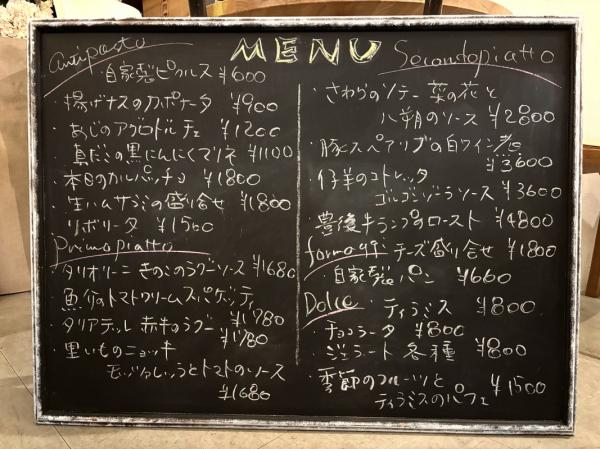 MENU
Antipasto
自家製ピクルス ¥600
・揚げナスのカポナータ ¥900
・あじのアグロドルチェ ¥1200
・真だこの黒にんにくマリネ ¥1100
・本日のカルパッチョ ¥1800
・生ハムサラミの盛り合せ ¥1800
・リボリータ ¥1500
Primopiatto
・タリオリーニ きのこのラグーソース ¥1680
・魚介のトマトクリームスパゲッティ
¥1780
・タリアテッレ 赤牛のラグー ¥1780
・里いものニョッキ
モッツァレッラとトマトのソース
¥1680
Secondopiatto
・さわらのソテー 菜の花と
八朔のソース ¥2800
・豚スペアリブの白ワイン煮
¥3600
・仔羊のコトレッタ
ゴルゴンゾーラソース ¥3600
・豊後牛ランプのロースト ¥4800
formaggi チーズ盛り合せ ¥1800
自家製パン ¥660
Dolce ・ティラミス ¥800
・チョコラータ ¥800
・ジェラート 各種 ¥800
・季節のフルーツと
ティラミスのパフェ ¥1500